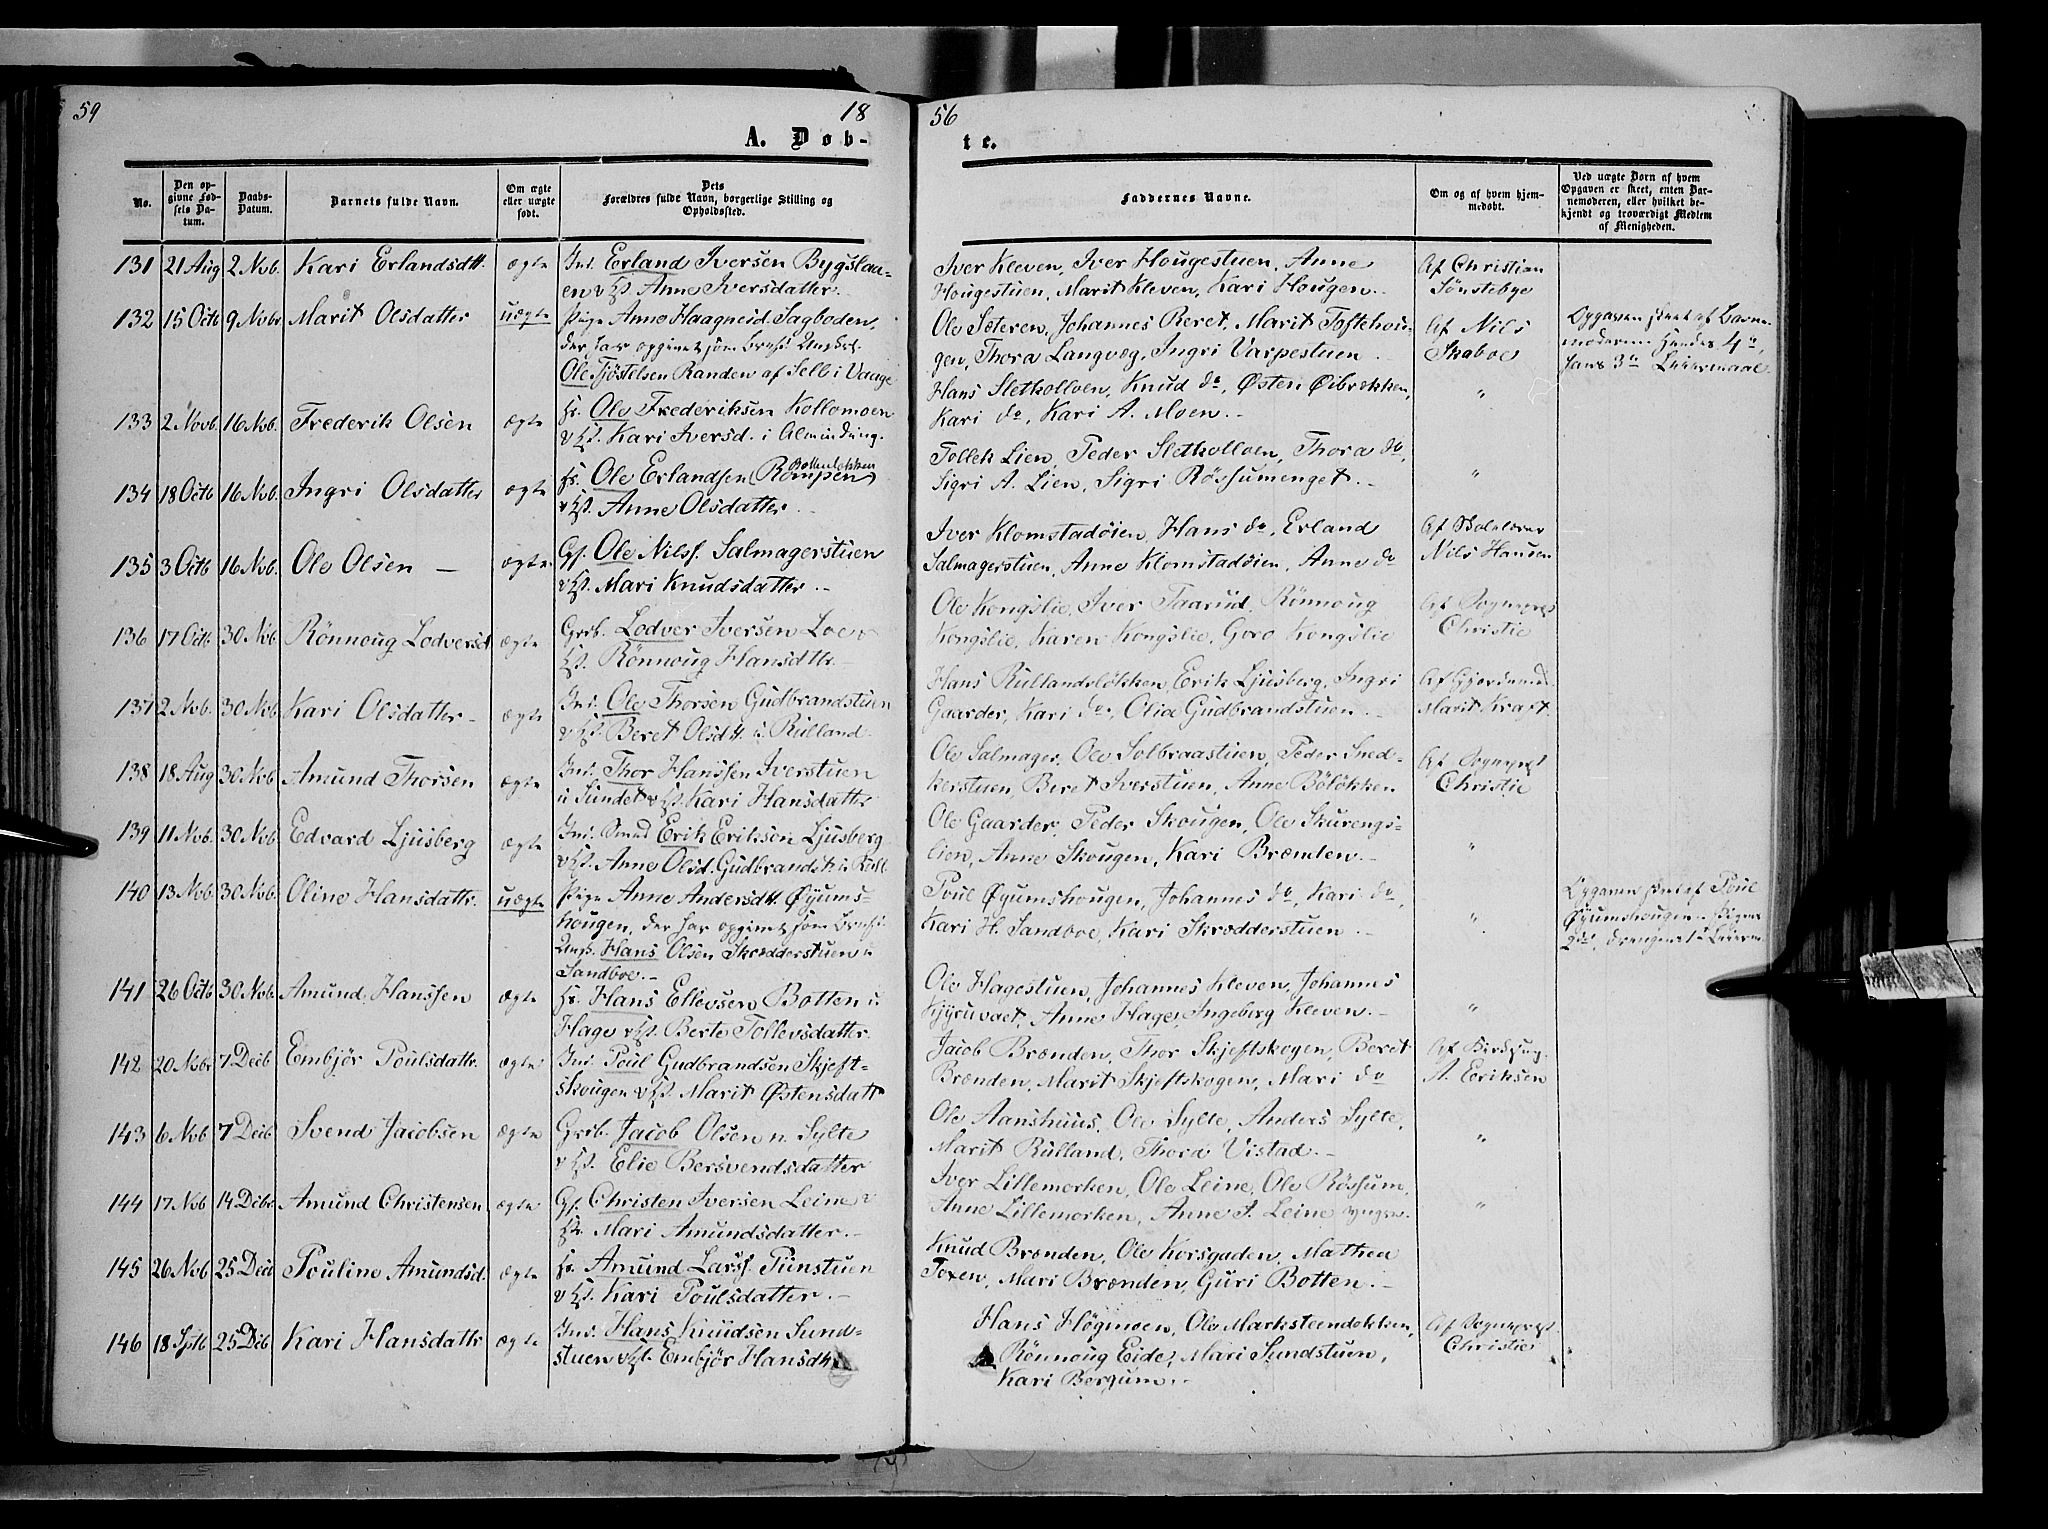 59
18
56
A. Døb-
te.
No.
Den op-
givne Fød-
sels Da-
tum.
Daabs-
Datum.
Barnets fulde Navn.
Om ægte
eller uægte
født.
Dets
Forældres fulde Navn, borgerlige Stilling og
Opholdssted.
Faddernes Navne.
Om og af hvem hjem-
medøbt.
Ved uægte Børn af hvem
Opgaven er skeet, enten Bar-
nemoderen, eller hvilket be-
kjendt og troværdigt Medlem
af Menigheden.
131 21 Aug 2 Nob. Kari Erlandsdtt. ægte Ind. Erland Iversen Bygslaa-
en v Hst. Anne Iversdatter.
Iver Kleven, Iver Hougestuen, Anne
Hougestuen, Marit Kleven, Kari Hougen.
Af Christian
Sønstebye
132 15 Octb 9 Nobr Marit Olsdatter uægte Pige Anne Haagneid Sagboden,
der har opgivet som Ungkl.
Ole Tjöstelsen Randen af Sell i Vaage
Ole Sæteren, Johannes Beret, Marit Toftehou-
gen, Thora Langvæg, Ingri Varpestuen
Af Nils
Skaboe
Opgaven skeet af Barne-
moderen. Hendes 4de,
hans 3de Leiermaal.
133 2 Novb. 16 Nob. Frederik Olsen ægte Hr. Ole Frederiksen Kollomoen
v Hst. Kari Iversd. i Alminding.
Hans Sletkollven, Knud do, Østen Øibrekken,
Kari do, Kari A. Moen.
"
134 18 Octb 16 Nob. Ingri Olsdatter ægte Hr. Ole Erlandsen (Rompen)
v Hst. Anne Olsdatter.
Tollek Lien, Peder Sletkollven, Thora do,
Sigri A. Lien, Sigri Røssumenget.
"
135 3 Octb 16 Nob. Ole Olsen – ægte Gf. Ole Nilss. Salmagerstuen
v Hst. Mari Knudsdatter.
Iver Klomstadöien, Hans do, Erland
Salmagerstuen, Anne Klomstadöien, Anne do
Af Skolelærer
Nils Hansen
136 17 Octb 30 Nob. Rönnoug Lodversd ægte Grb. Lodver Iversen Loe v
Hst. Rönnoug Hansdtr.
Ole Kongslie, Iver Taarud, Rönnoug
Kongslie, Karen Kongslie, Goro Kongslie
Af Sognepræst
Christie
137 2 Nob. 30 Nob Kari Olsdatter – ægte Ind. Ole Thorsen Gudbrandstuen
v Hst. Beret Olsdtt. u Rulland.
Hans Rullandsløkken, Erik Ljusberg, Ingri
Gaarder, Kari do, Olia Gudbrandstuen.
Af Gjordemod.
Marit Kraft.
138 18 Aug 30 Nob Amund Thorsen ægte Ind. Thor Hanssen Iverstuen
u Sundet v Hst. Kari Hansdatter
Ole Salmager, Ole Solbraastuen, Peder Sned-
kerstuen, Beret Iverstuen, Anne Böløkken
Af Sognepræst
Christie
139 11 Nob. 30 Nob. Edvard Ljusberg ægte Ind. Smed Erik Eriksen Ljusberg
v Hst. Anne Olsd. Gudbrandst. u Rull.
Ole Gaarder, Peder Skougen, Ole Skurengs-
lien, Anne Skougen, Kari Brænden.
"
140 13 Nob. 30 Nob. Oline Hansdatter. uægte Pige Anne Andersdtt. Øyums-
hougen, der har opgivet som
Ungk. Hans Olsen Skrædderstuen u
Sandboe.
Poul Øyumshougen, Johannes do, Kari do,
Kari H. Sandboe, Kari Skrædderstuen.
"
Opgaven skeet af Poul
Øyumshougen. Pigens
2det, Drengens 1ste Leierm.
141 26 Octb 30 Nob. Amund Hanssen ægte Hr. Hans Ellevsen Botten u
Hage v Hst. Berte Tollevsdatter.
Ole Hagestuen, Johannes Kleven, Johannes
Kjyruvaet, Anne Hage, Ingeborg Kleven.
"
142 20 Nobr 7 Decb Embjör Poulsdatter. ægte Ind. Poul Gudbrandsen Skjeft-
skougen v Hst. Marit Østensdatt
Jacob Brænden, Thor Skjeftskogen, Beret
Brænden, Marit Skjeftskogen, Mari do
Af
A. Eriksen
143 6 Nob 7 Decb Svend Jacobsen ægte Grb. Jacob Olsen n. Sylte
v Hst. Elie Bersvendsdatter
Ole Aanshuus, Ole Sylte, Anders Sylte,
Marit Rulland, Thora Vistad.
"
144 17 Nob 14 Debr Amund Christensen ægte Gf. Christen Iversen Leine v
Hst. Mari Amundsdatter.
Iver Lillemorken, Ole Leine, Ole Røssum,
Anne Lillemorken, Anne I. Leine yngre.
"
145 26 Nob 25 Decb Pouline Amundsd. ægte Hr. Amund Larss. Tunstuen
v Hst. Kari Poulsdatter.
Knud Brænden, Ole Korsgaden, Mathea
Toxen, Mari Brænden, Guri Botten.
146 18 Sptb 25 Deb Kari Hansdattr ægte Ind. Hans Knudsen Sund-
stuen v Hst. Embjör Hansdtt.
Hans Høgmoen, Ole Marksteendokken,
Rönnoug Eide, Mari Sundstuen,
Kari Bergum.
Af Sognepræst.
Christie